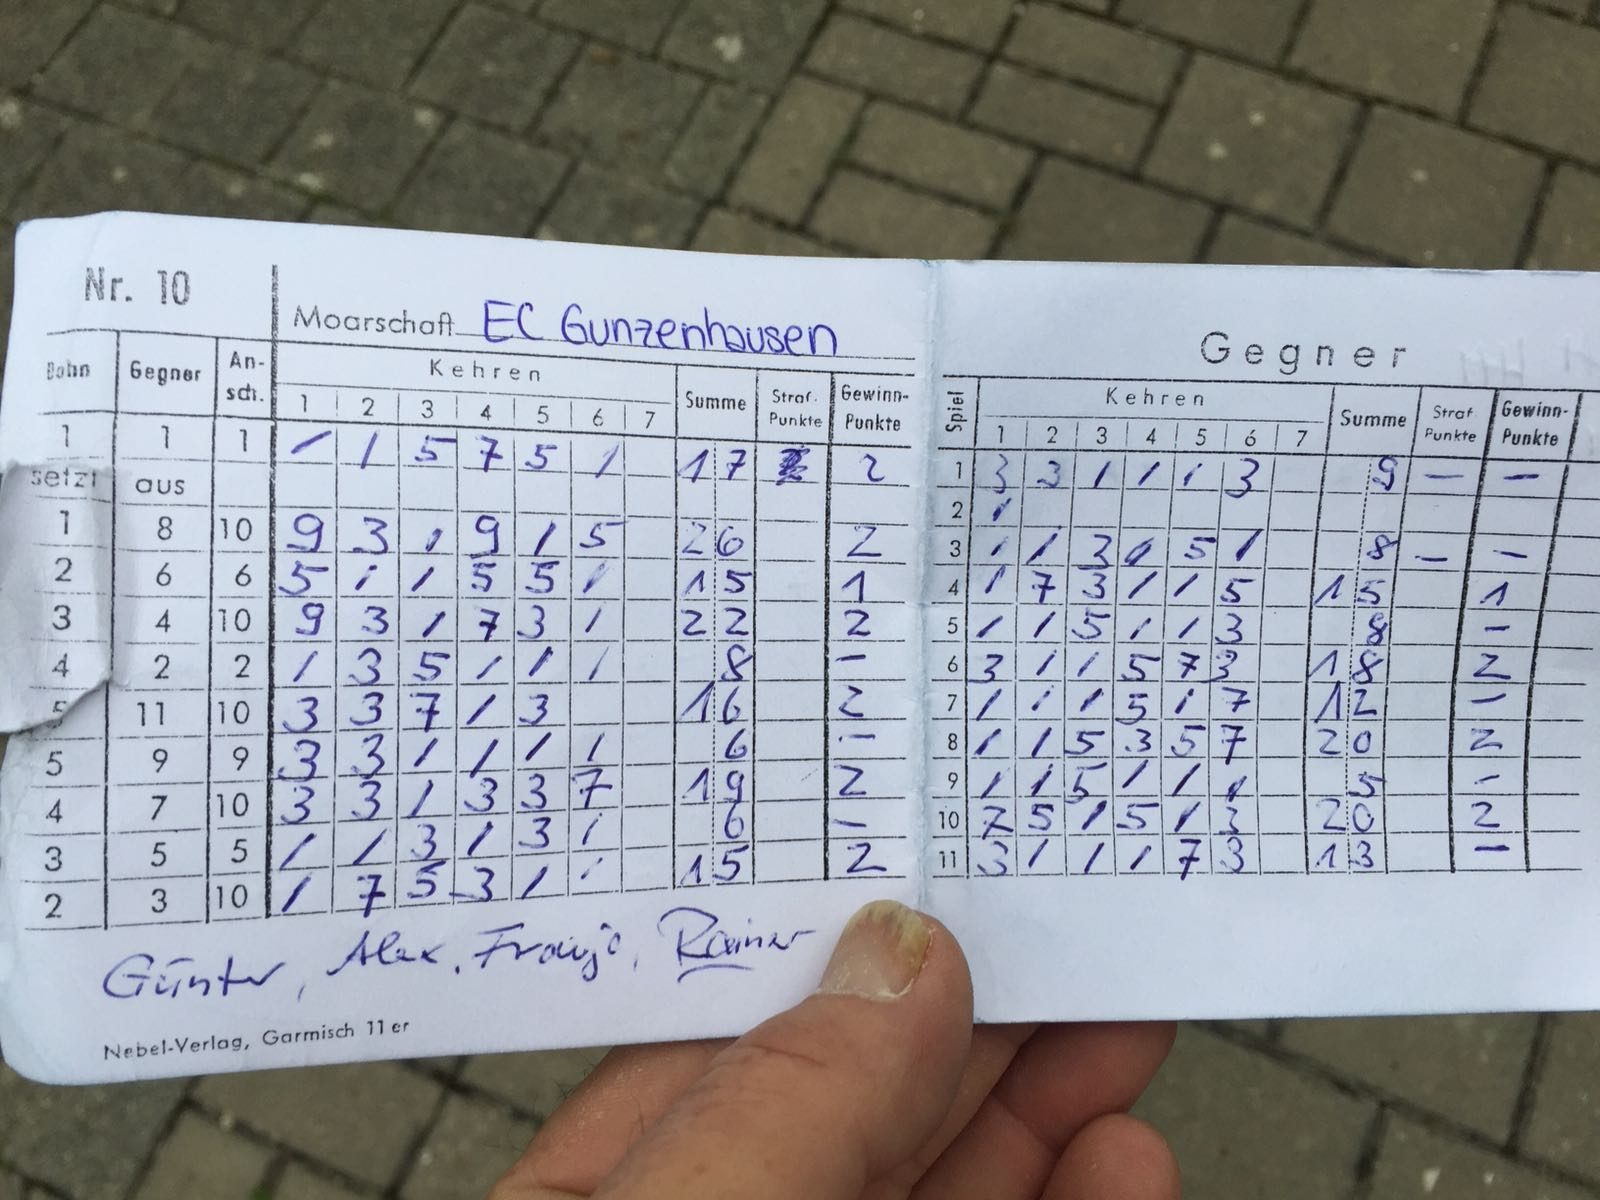 Nr. 10
Moarschaft EC Gunzenhausen
Bahn Gegner An-sch. Kehren Summe Straf. Punkte Gewinn-Punkte
1 2 3 4 5 6 7
1 1 1 / 1 5 7 5 1 17 2
setzt aus
1 8 10 9 3 1 9 1 5 26 2
2 6 6 5 1 1 5 5 1 15 1
3 4 10 9 3 1 7 3 1 22 2
4 2 2 1 3 5 1 1 1 8 –
5 11 10 3 3 7 / 3 16 2
5 9 9 3 3 1 1 1 1 6 –
4 7 10 3 3 / 3 3 7 19 2
3 5 5 / / 3 / 3 / 6 –
2 3 10 / 7 5 3 / / 15 2
Günter, Alex, Franjo, Rainer
Nebel-Verlag, Garmisch 11er
Gegner
Spiel Kehren Summe Straf Punkte Gewinn-Punkte
1 2 3 4 5 6 7
1 3 3 / / / 3 9 – –
2 /
3 / / 3 / 5 / 8 – –
4 / 7 3 / / 5 15 1
5 / / 5 / / 3 8 –
6 3 / / 5 7 3 18 2
7 / / / 5 / 7 12 –
8 / / 5 3 5 7 20 2
9 / / 5 / / / 5 –
10 7 5 / 5 / 3 20 2
11 3 / / / 7 3 13 –